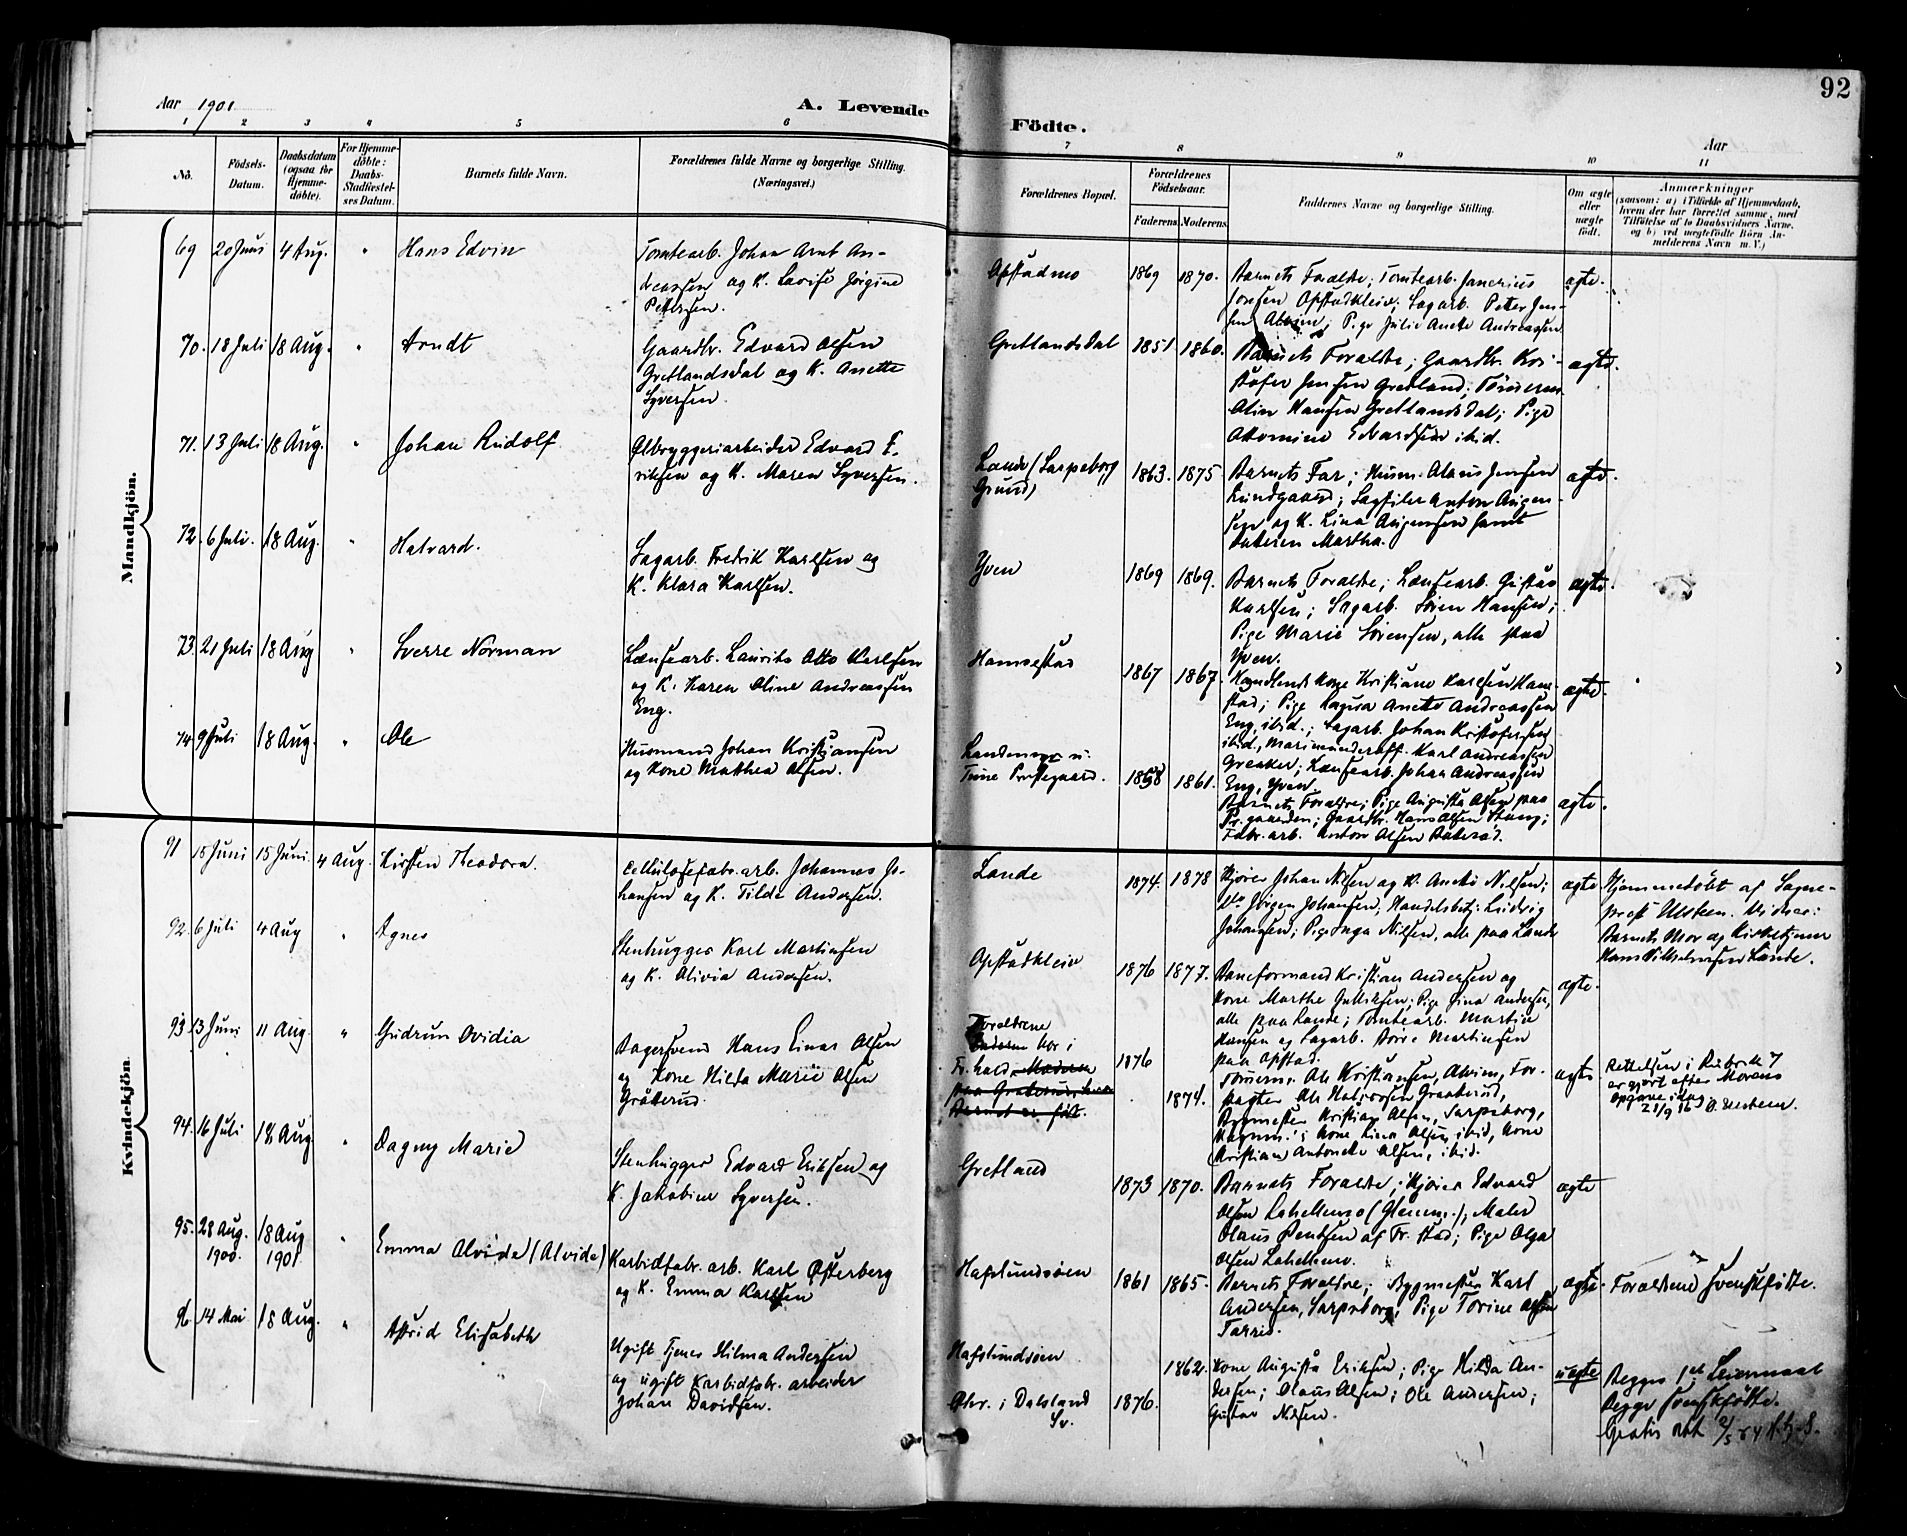 92
Aar 1901
A. Levende
Födte.
Aar
1 2 3 4 5 6
7 8 9 10 11
No.
Födsels-
Datum.
Daabsdatum
(ogsaa for
Hjemme-
döbte).
For Hjemme-
döbte:
Daabs-
Stadfæstel-
ses Datum.
Barnets fulde Navn.
Forældrenes fulde Navne og borgerlige Stilling.
(Næringsvei.)
Forældrenes Bopæl.
Forældrenes
Födselsaar.
Faderens.
Moderens.
Faddernes Navne og borgerlige Stilling.
Om ægte
eller
uægte
födt.
Anmærkninger
(saasom: a) i Tilfælde af Hjemmedaab,
hvem der har forrettet samme, med
Tilföielse af to Daabsvidners Navne,
og b) ved uægtefödte Börn An-
melderens Navn m. V.)
Mandkjön.
69 20 Juni 4 Aug. " Hans Edvin
Tomtearb. Johan Arnt An-
dreassen og K. Lovise Jørgine
Pettersen.
Opstadmo 1869 1870.
Barnets Forældre; Tomtearb. Janerius
Jensen Opstadkleiv; Sagarb. Petter Jen-
sen Alvim; Pige Julie Anette Andreassen
ægte.
70. 18 Juli 18 Aug. " Arndt
Gaardbr. Edvard Olsen
Gretlandsdal og K. Anette
Syversen.
Gretlandsdal 1851 1860.
Barnets Forældre; Gaardbr. Kri-
stofer Jensen Gretland; Tømmerm.
Olin Hansen Gretlandsdal; Pige
Ottomine Edvardsen ibid.
ægte.
71. 13 Juli 18 Aug. " Johan Rudolf
Ølbryggeriarbeider Edvard E-
riksen og K. Maren Syversen.
Lande (Sarpsborg
Grund) 1863. 1875
Barnets Far; Husm. Olaus Jensen
Lundgaard; Sagfiler Anton Augen-
sen og K. Lina Augensen samt
datteren Martha.
ægte.
72. 6 Juli. 18 Aug. " Halvard.
Sagarb. Fredrik Karlsen og
K. Klara Karlsen.
Yven 1869 1869.
Barnets Forældre; Lænsearb. Gustav
Karlsen; Sagarb. Søren Hansen;
Pige Marie Sørensen, alle paa
Yven.
ægte.
73. 21 Juli 18 Aug " Sverre Norman
Lænsearb. Laurits Otto Karlsen
og K. Karen Oline Andreassen
Eng.
Hannestad 1867 1867.
Handlends kone Kristiane Karlsen Hanne-
stad; Pige Lagusa Anette Andreassen
Eng, ibid.; Sagarb. Johan Kristofersen
ibid., Marineunderoff. Karl Andreassen
Greaker; Lænsearb. Johan Andreassen
Eng, Yven.
ægte.
74. 9 Juli 18 Aug. " Ole
Husmand Johan Kristiansen
og Kone Mathea Olsen.
Landemyr u.
Tune Præstegaard. 1858 1861.
Barnets Forældre; Pige Augusta Olsen paa
Pr.gaarden; Gaardbr. Hans Olsen Stang;
Fabr.arb. Anton Olsen Bakerød.
ægte.
Kvindekjön
91 15 Juni 15 Juni. 4 Aug. Kirsten Theodora.
Cellulosefabr.arb. Johannes Jo-
hansen og K. Tilda Andersen.
Lande 1874. 1878
Kjører Johan Nilsen og K. Anette Nilsen;
Do Jørgen Johansen; Handelsbetj. Ludvig
Johansen; Pige Inga Nilsen, alle paa Lande
ægte
Hjemmedøbt af Sogne-
prest Ulsteen. Vidner:
Barnets Mor og Kirketjener
Hans Vilhelmsen Lande.
92. 6 Juli 4 Aug " Agnes
Stenhugger Karl Martinsen
og K. Olivia Andersen.
Opstadkleiv 1876 1877.
Baneformand Kristian Andersen og
Kone Marthe Gulliksen; Pige Gina Andersen,
alle paa Lande; Tomtearb. Martin
Hansen og Sagarb. Martinsen
paa Opstad.
ægte.
93 13 Juni 11 Aug. " Gudrun Ovidia
Bagersvend Hans Einar Olsen
og Kone Hilda Marie Olsen
Gråterud.
Forældrene
Faderen bor i
Fr.hald. Moderen
1876
1874.
Tømmerm. Ole Kristiansen, Alvim, For-
pagter Ole Halvorsen Graaterud,
Bygmester Kristian Olsen, Sarpsborg,
Kone Lina Olsen ibid, Kone
Kristian Antonette Olsen, ibid.
ægte
Rettelsen i Rubrik 7
er gjort efter Morens
Opgave idag
21/9 16 O. Ulsteen.
94. 16 Juli 18 Aug " Dagny Marie
Stenhugger Edvard Eriksen og
K. Jakobine Syversen.
Gretland 1873 1870.
Barnets Forældre; Kjører Edvard
Olsen Lahellemo (Glemm.); Maler
Olaus Bentsen af Fr.stad; Pige Olga
Olsen Lahellemo.
ægte
95. 28 Aug. 1900. 18 Aug 1901 " Emma Alvide (Alvida)
Karbidfabr.arb. Karl Østerberg
og K. Emma Karlsen
Hafslundsøen 1861 1865.
Barnets Forældre; Bygmester Karl
Andersen, Sarpsborg; Pige Torine Olsen
Torrid.
ægte.
Forældrene svenskfødte.
96. 14 Mai 18 Aug. " Astrid Elisabeth
Ugift Tjenes Hilma Andersen
og ugift Karbidfabr. arbeider
Johan Davidsen.
Hafslundsøen
Ohr. i Dalsland
Sv. 1876. 1862.
Kone Augusta Eriksen; Pige Hilda An-
dersen; Olaus Olsen; Ole Andersen;
Gustav Nilsen.
uægte
Begges 1st Leiermaal
Begge svenskfødte.
Gratis att.